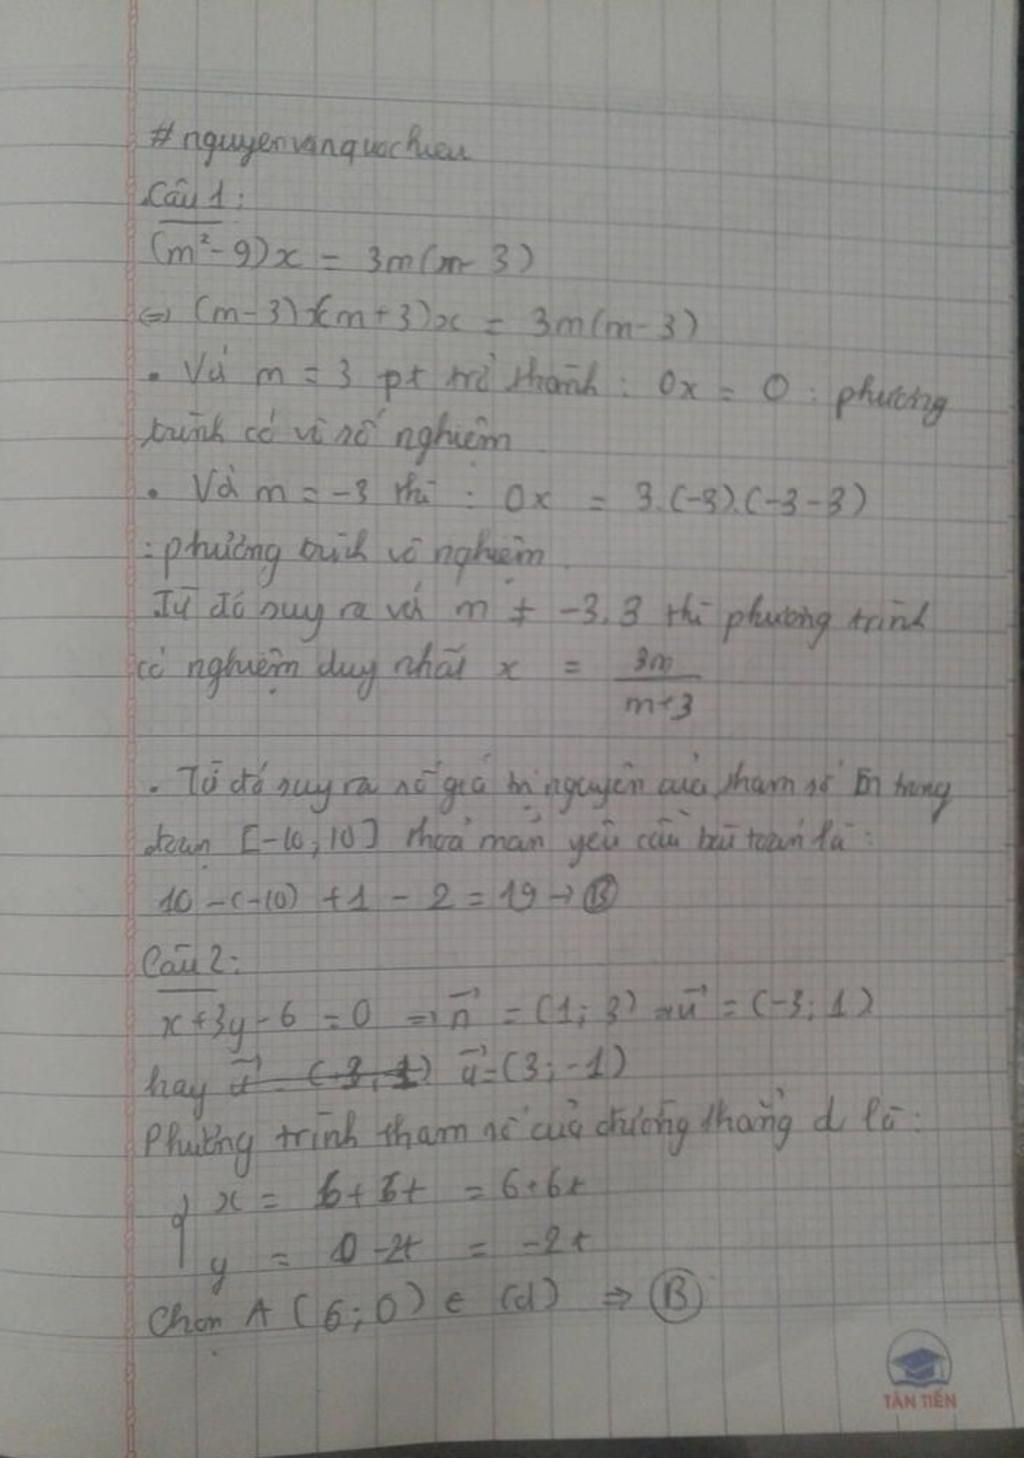 #nguyenvanquocchieu
Câu 1:
(m² - 9)x = 3m(m - 3)
⇔ (m - 3)(m + 3)x = 3m(m - 3)
. Với m = 3 pt trở thành : 0x = 0 : phương
trình có vô số nghiệm
. Với m = -3 thì : 0x = 3.(-3).(-3-3)
: phương trình vô nghiệm.
Từ đó suy ra với m ≠ -3, 3 thì phương trình
có nghiệm duy nhất x = 3m / m+3
. Từ đó suy ra số giá trị nguyên của tham số m trong
đoạn [-10; 10] thoả mãn yêu cầu bài toán là :
10 - (-10) + 1 - 2 = 19 → B
Câu 2:
x + 3y - 6 = 0 ⇒ n⃗ = (1; 3) ⇒ u⃗ = (-3; 1)
hay u⃗ = (3; -1)
Phương trình tham số của đường thẳng d là :
{ x = 6 + 6t = 6 + 6t
y = 0 - 2t = -2t
Chọn A (6; 0) ∈ (d) ⇒ B
TÂN TIẾN